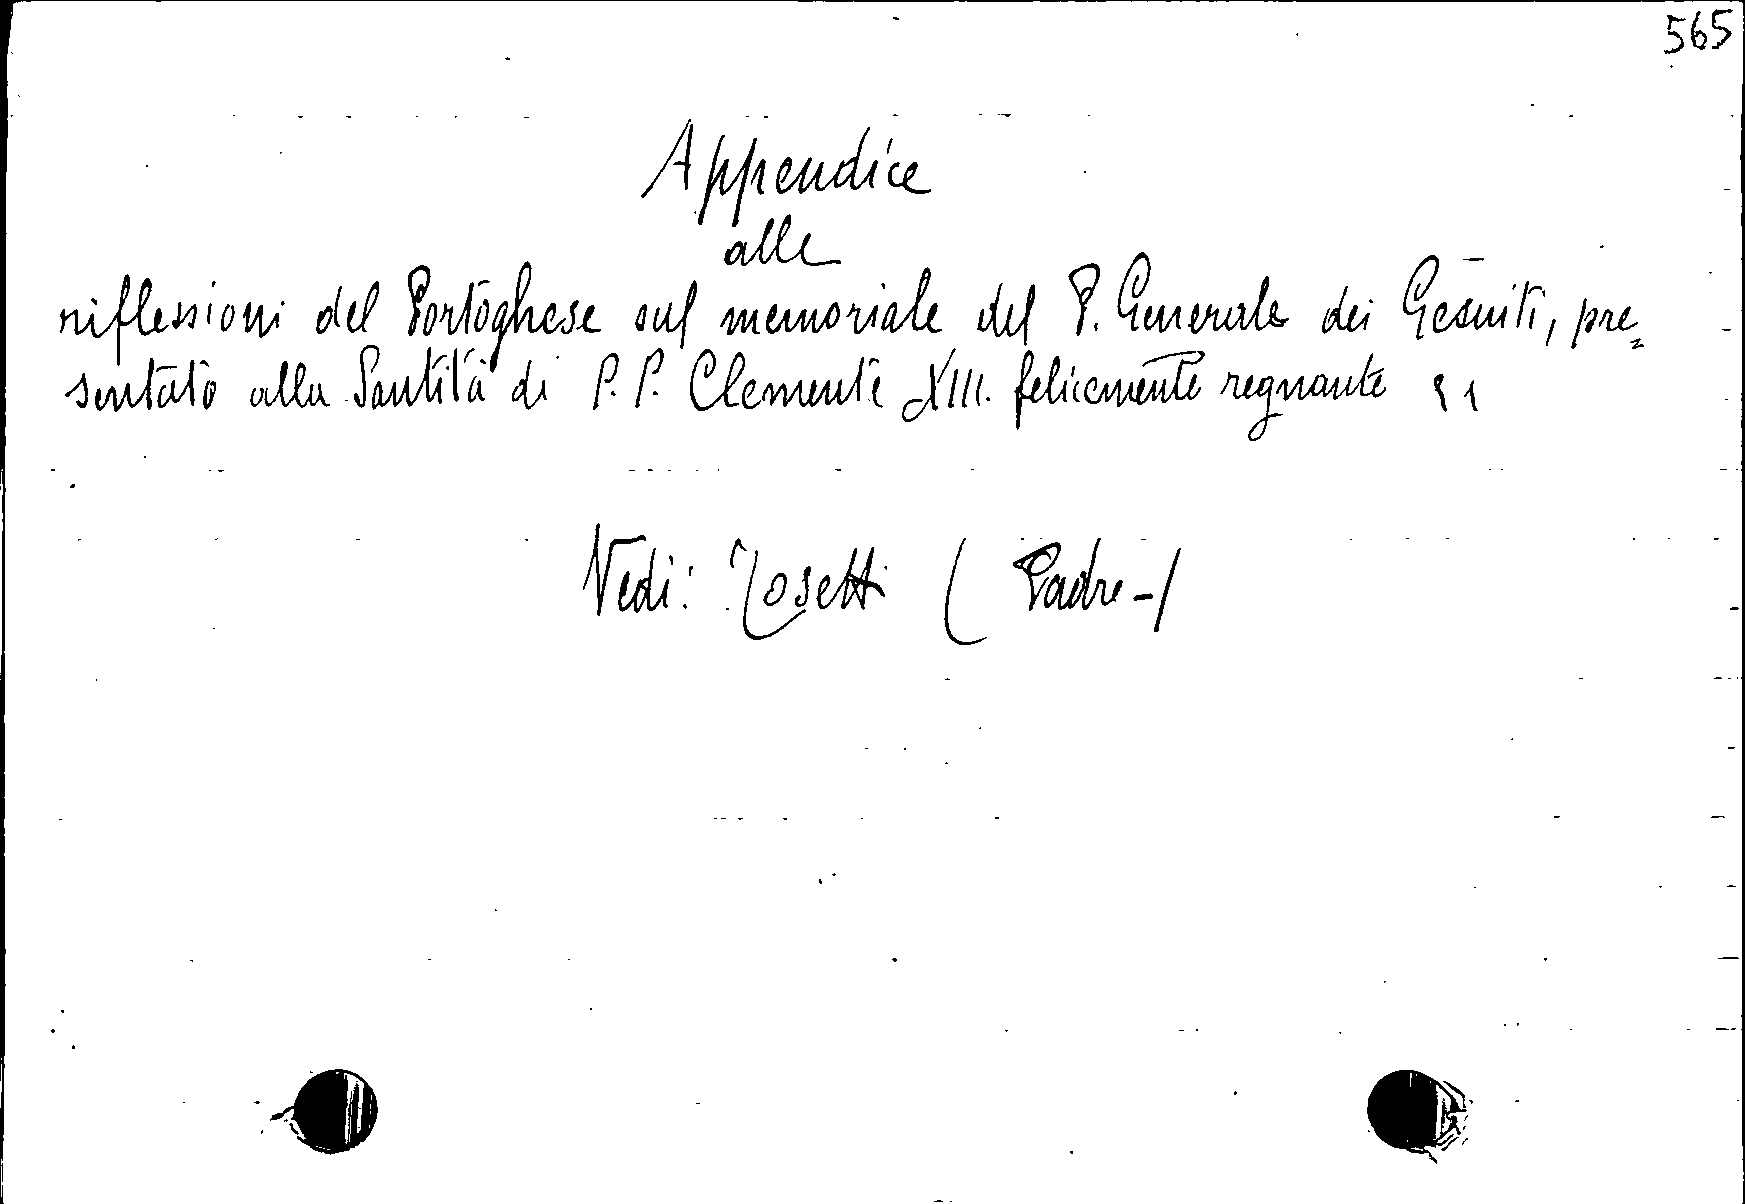 565
Appendice
alle
riflessioni del Portoghese sul memoriale del P. Generale dei Gesuiti, pre=
sentato alla Santità di P. P. Clemente XIII. felicemente regnante
Vedi: (Padre-)